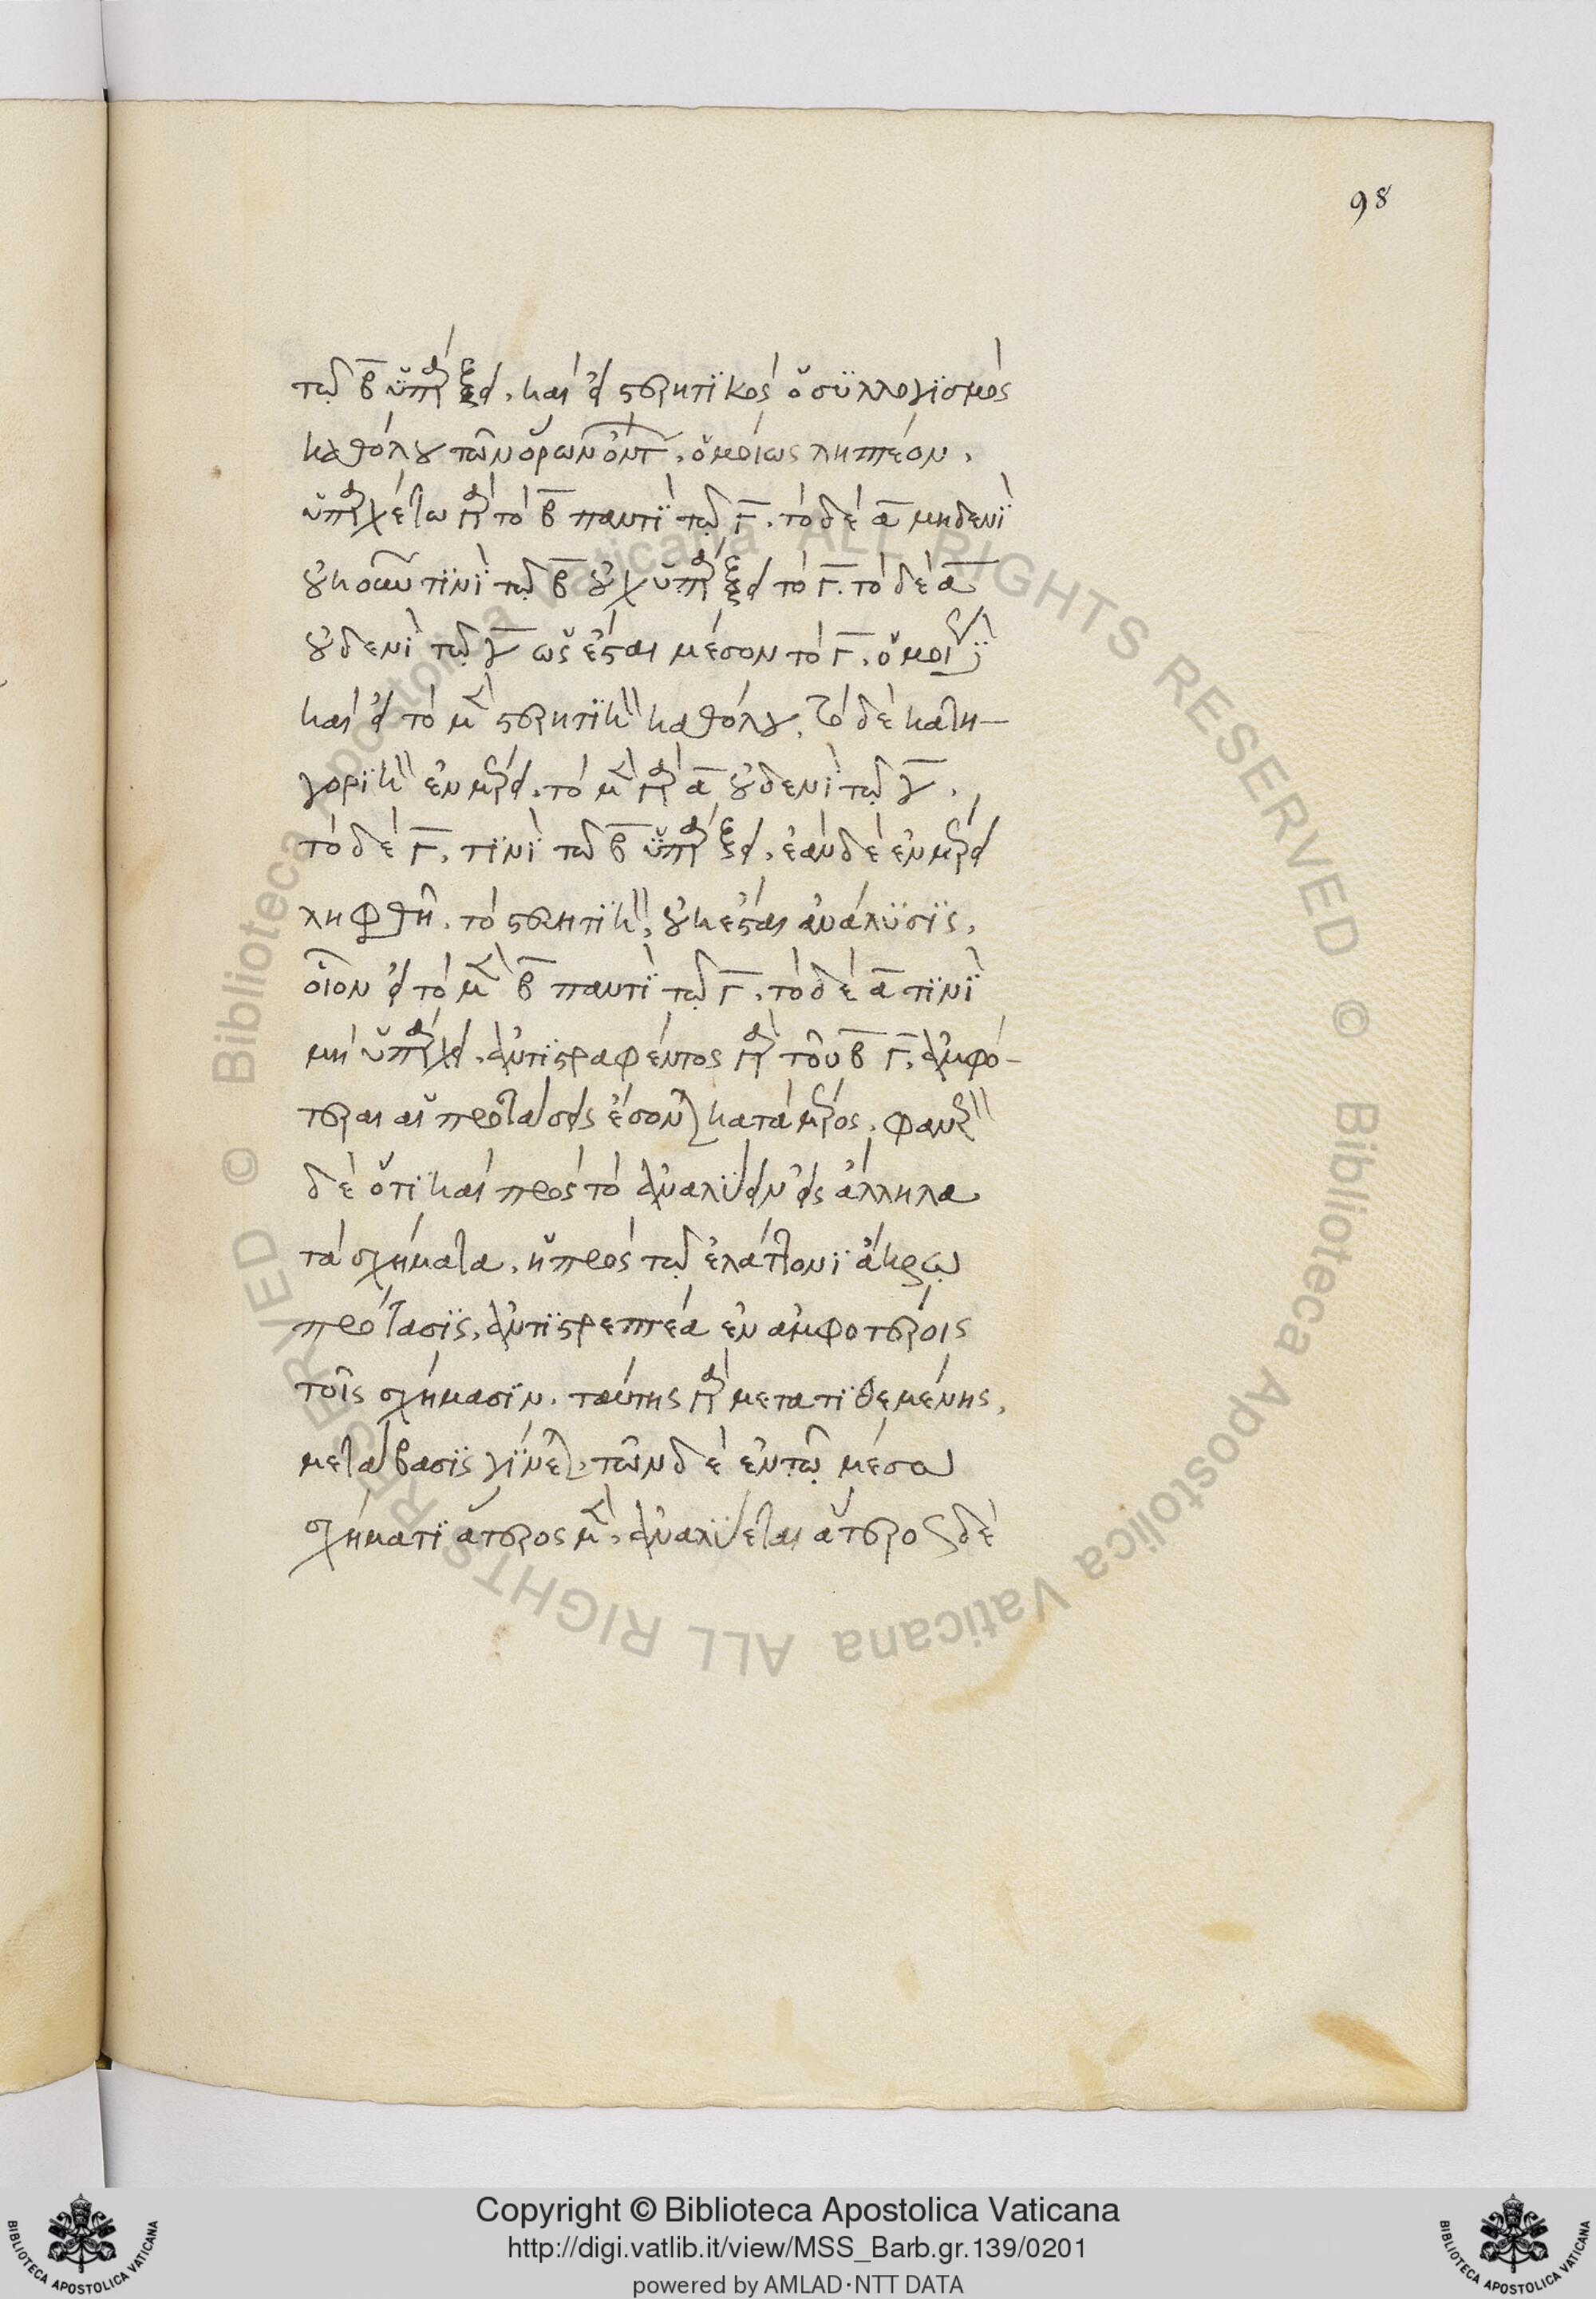 98
τῷ β ὑπάρξει. καὶ εἰ στερητικὸς ὁ συλλογισμὸς
καθόλου τῶν ὅρων ὄντων. ὁμοίως ληπτέον.
ὑπαρχέτω γὰρ τὸ β παντὶ τῷ γ. τὸ δὲ α μηδενὶ
οὐκοῦν τινὶ τῷ β οὐχ ὑπάρξει τὸ γ. τὸ δὲ α
οὐδενὶ τῷ γ ὥστ' ἔσται μέσον τὸ γ. ὁμοίως
καὶ εἰ τὸ μὲν στερητικὸν καθόλου, τὸ δὲ κατη-
γορικὸν ἐν μέρει. τὸ μὲν γὰρ α οὐδενὶ τῷ γ.
τὸ δὲ γ. τινὶ τῷ β ὑπάρξει. ἐὰν δὲ ἐν μέρει
ληφθῇ. τὸ στερητικὸν, οὐκ ἔσται ἀνάλυσις.
οἷον εἰ τὸ μὲν β παντὶ τῷ γ. τὸ δὲ α τινὶ
μὴ ὑπάρχει. ἀντιστραφέντος γὰρ τοῦ β γ. ἀμφό-
τεραι αἱ προτάσεις ἔσονται κατὰ μέρος. φανερὸν
δὲ ὅτι καὶ πρὸς τὸ ἀναλύειν εἰς ἄλληλα
τὰ σχήματα. ἡ πρὸς τῷ ἐλάττονι ἄκρῳ
πρότασις. ἀντιστρεπτέα ἐν ἀμφοτέροις
τοῖς σχήμασιν. ταύτης γὰρ μετατιθεμένης.
μετάβασις γίνεται. τῶν δὲ ἐν τῷ μέσῳ
σχήματι ἅτερος μὲν. ἀναλύεται ἅτερος δὲ
Copyright © Biblioteca Apostolica Vaticana
http://digi.vatlib.it/view/MSS_Barb.gr.139/0201
powered by AMLAD·NTT DATA
BIBLIOTECA APOSTOLICA VATICANA
BIBLIOTECA APOSTOLICA VATICANA
© Biblioteca Apostolica Vaticana ALL RIGHTS RESERVED © Biblioteca Apostolica Vaticana ALL RIGHTS RESERVED